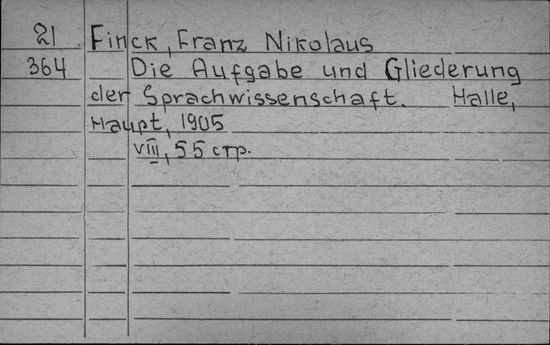 21 Finck, Franz Nikolaus
364 Die Aufgabe und Gliederung
der Sprachwissenschaft. Halle,
Haupt, 1905
VIII, 55 стр.